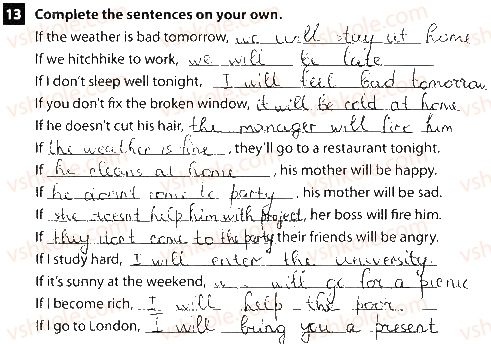 13 Complete the sentences on your own.
If the weather is bad tomorrow, we will stay at home
If we hitchhike to work, we will be late
If I don't sleep well tonight, I will feel bad tomorrow
If you don't fix the broken window, it will be cold at home
If he doesn't cut his hair, the manager will fire him
If the weather is fine, they'll go to a restaurant tonight.
If he cleans at home, his mother will be happy.
If he doesn't come to party, his mother will be sad.
If she doesn't help him with project, her boss will fire him.
If they don't come to the party their friends will be angry.
If I study hard, I will enter the university
If it's sunny at the weekend, will go for a picnic
If I become rich, I will help the poor
If I go to London, I will bring you a present